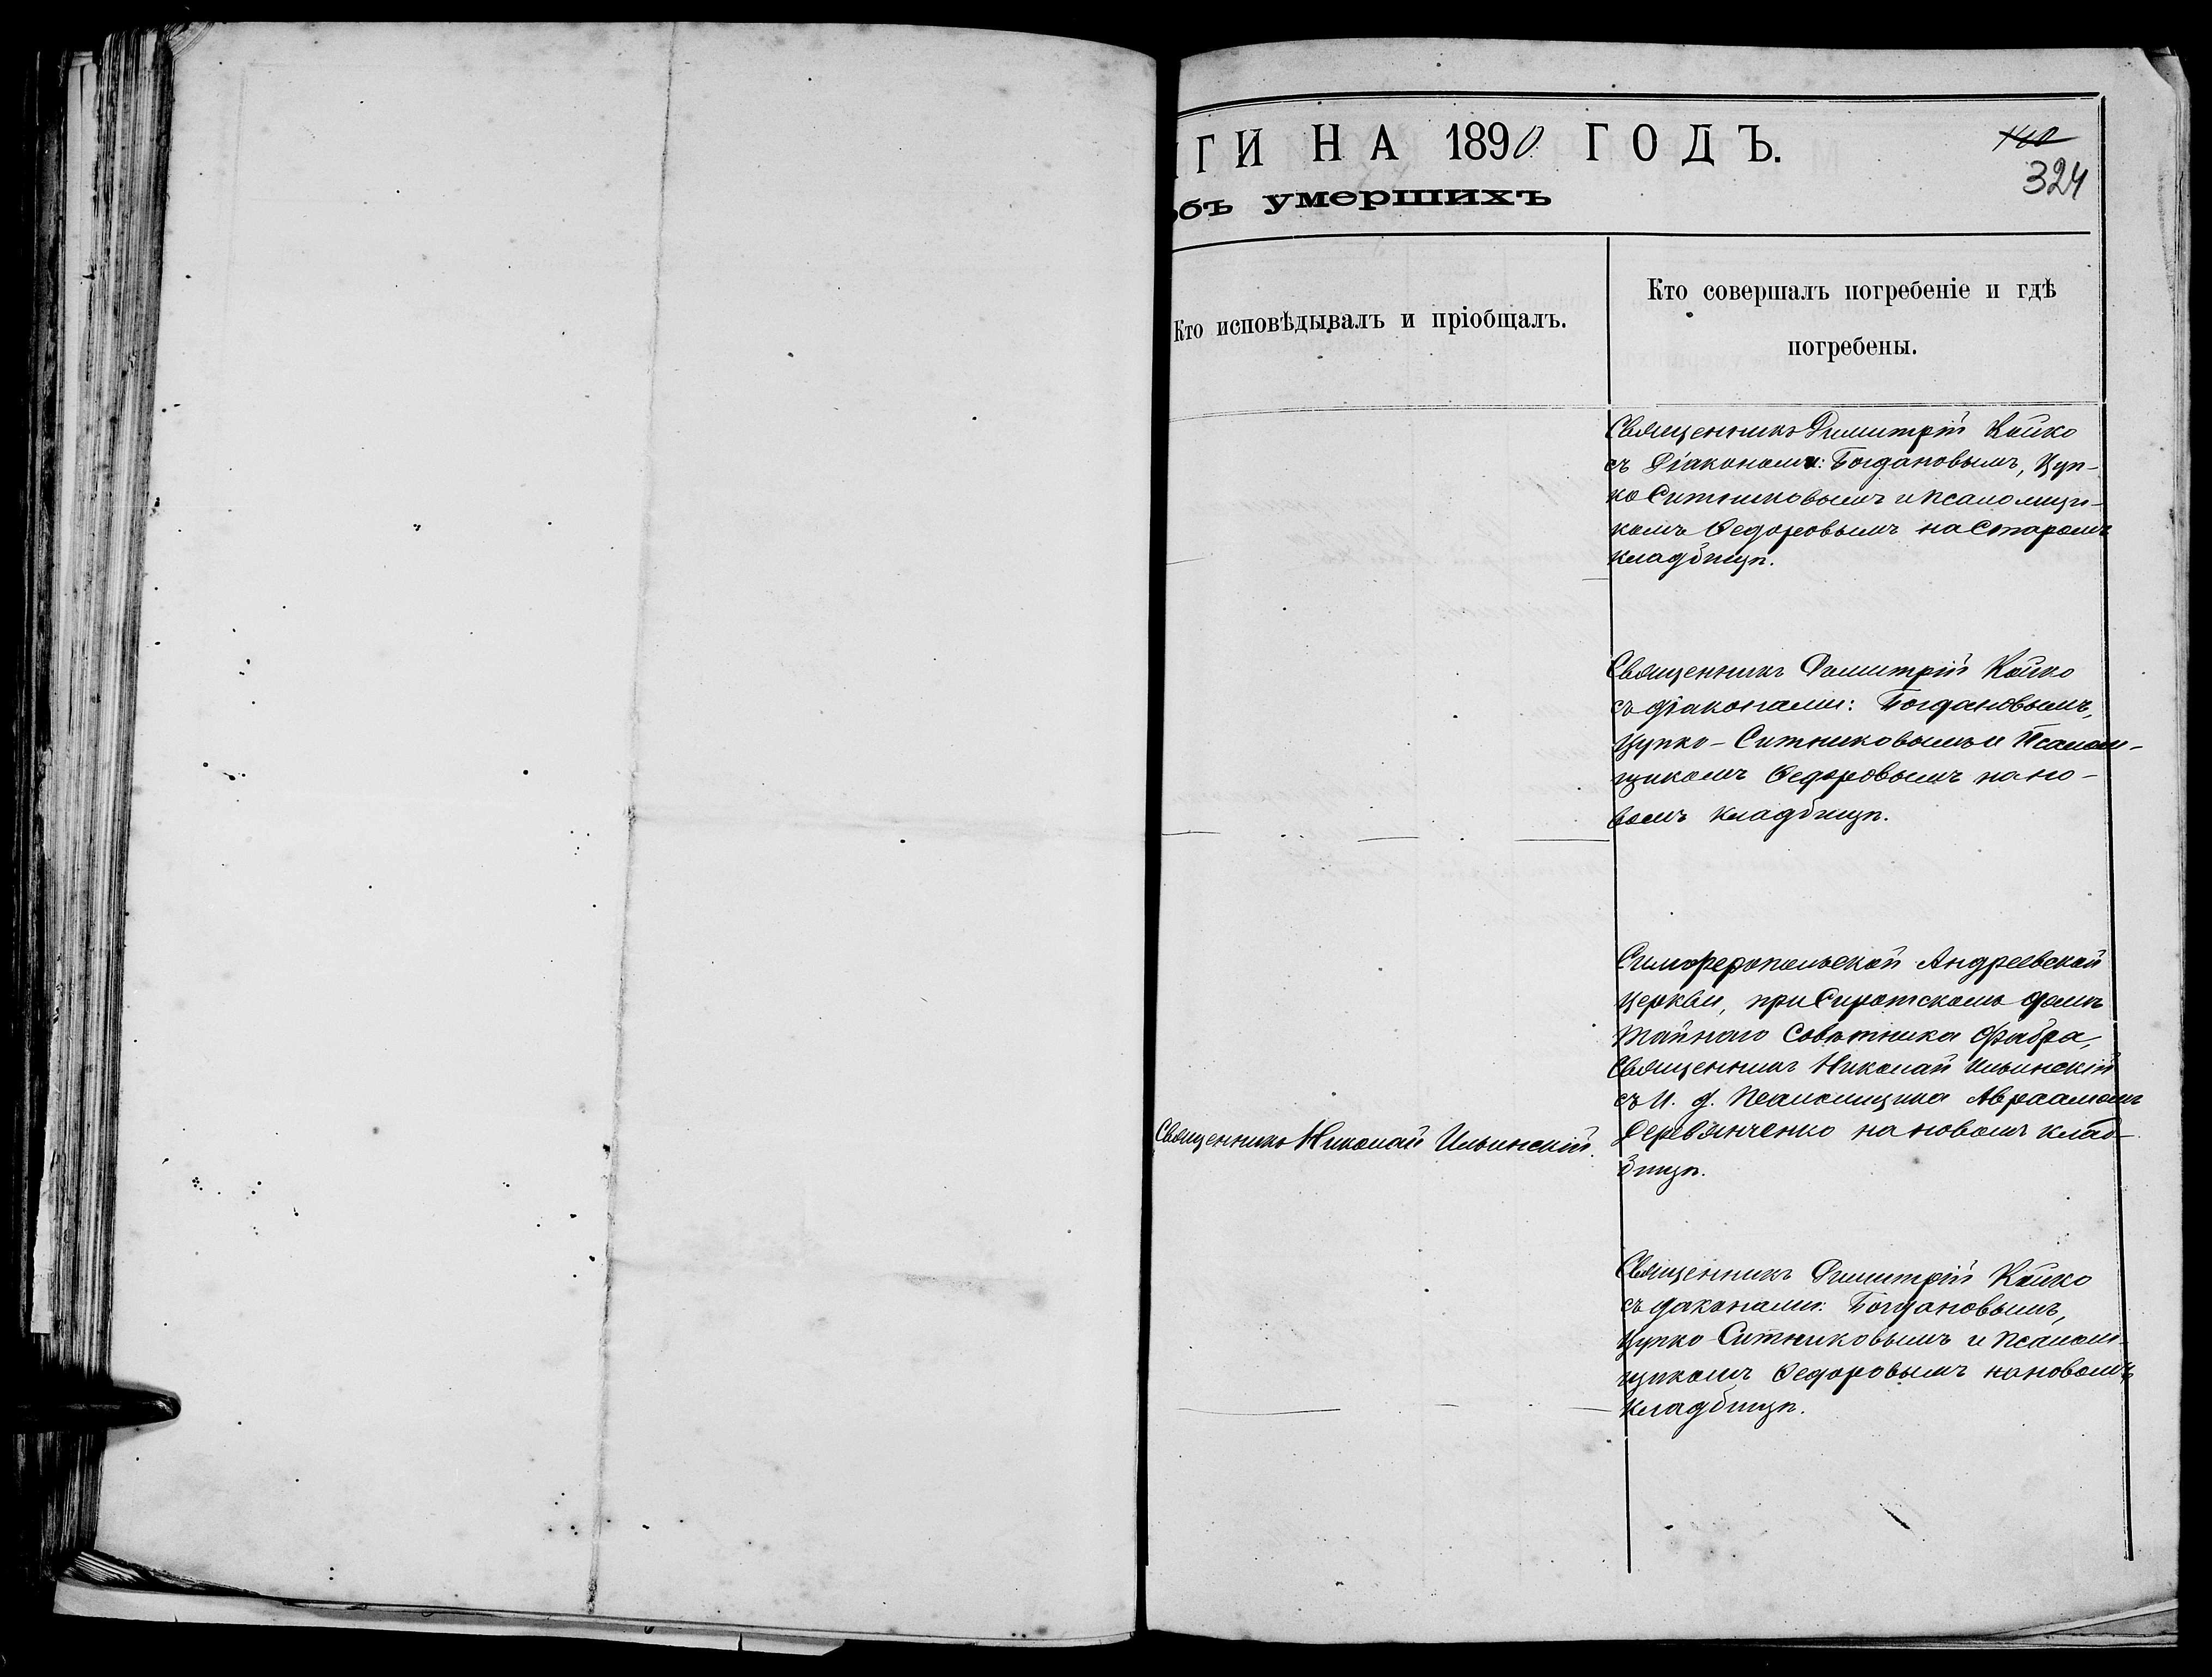 ГИ НА 1890 ГОДЪ.
324
объ умершихъ
Кто исповѣдывалъ и пріобщалъ.
Кто совершалъ погребеніе и гдѣ
погребены.
Священникъ Димитрій Койко
съ Діаконами: Богдановымъ, Цуп-
ко Ситниковымъ и псаломщи-
комъ Ѳедоровымъ на Старомъ
кладбищѣ.
Священникъ Димитрій Койко
съ діаконами: Богдановымъ,
Цупко-Ситниковымъ и Псалом-
щикомъ Ѳедоровымъ на но-
вомъ кладбищѣ.
Симферопольской Андреевской
церкви, при Сиротскомъ домѣ
Тайнаго Совѣтника Фабра,
Священникъ Николай Ильинскій
съ И. д. Псаломщика Авраамомъ
Деревянченко на новомъ клад-
бищѣ.
Священникъ Николай Ильинскій.
Священникъ Димитрій Койко
съ діаконами: Богдановымъ,
Цупко-Ситниковымъ и псалом-
щикомъ Ѳедоровымъ на новомъ
кладбищѣ.